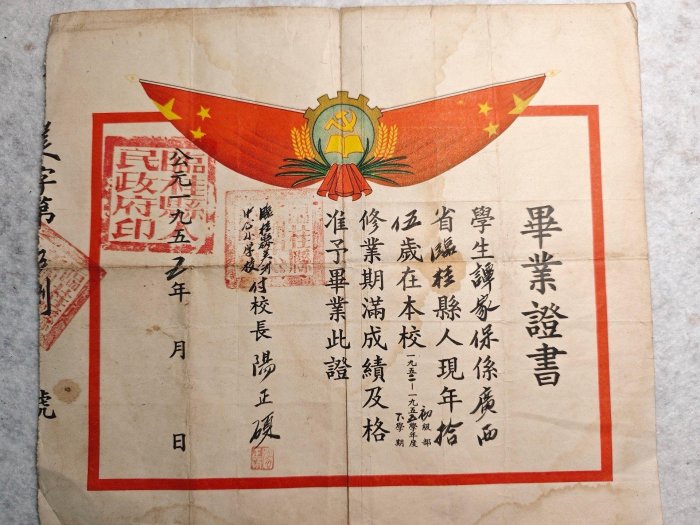 畢業證書
學生譚家保係廣西
省臨桂縣人現年拾
伍歲在本校
初級部
一九五二—一九五五學年度
下學期
修業期滿成績及格
准予畢業此證
中心小學校
付校長陽正碩
公元一九五五年 月 日
臨桂縣人民政府印
字第
號